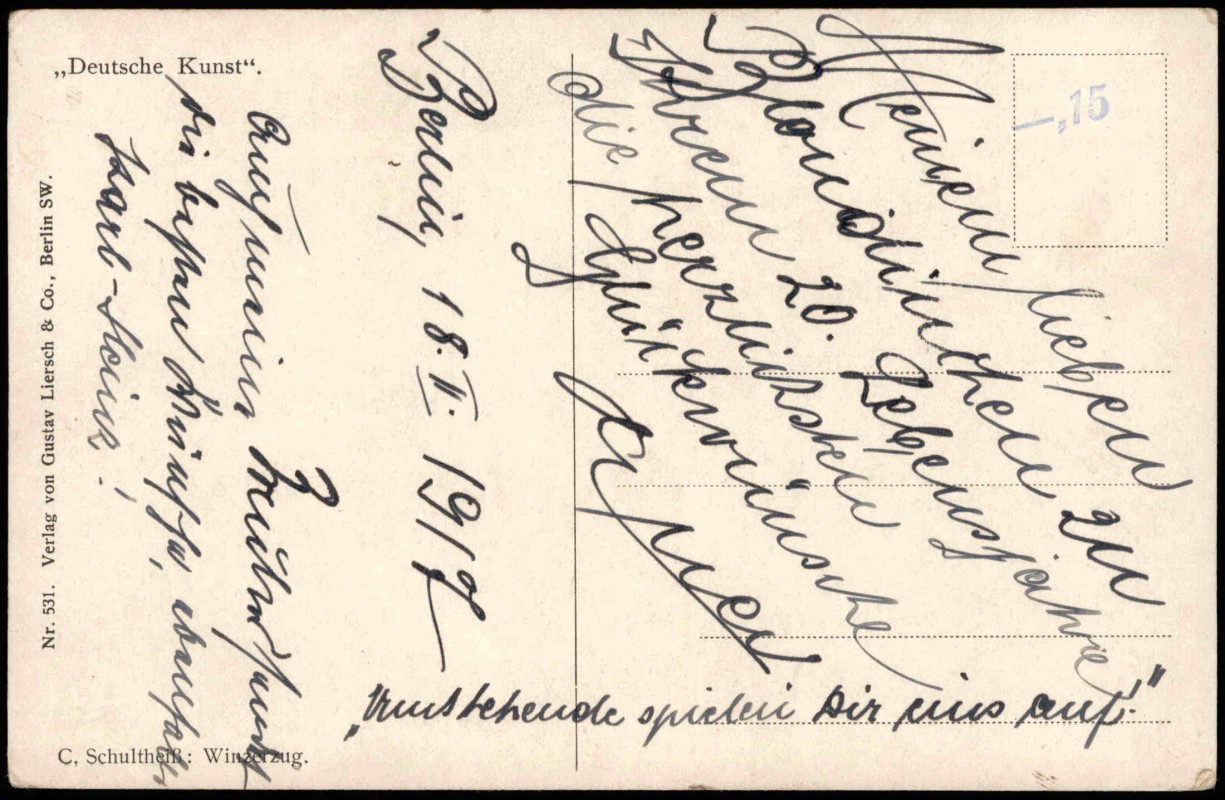 „Deutsche Kunst“.
—,15
Meinen lieben
Blondinchen zu
Ihrem 20. Lebensjahre
die herzlichsten
Glückwünsche
Berlin, 18. II. 1917
Auf meiner
die besten
Karl-Heinz!
„Umstehende spielen Dir eins auf!“
Nr. 531. Verlag von Gustav Liersch & Co., Berlin SW.
C. Schultheiß: Winzerzug.